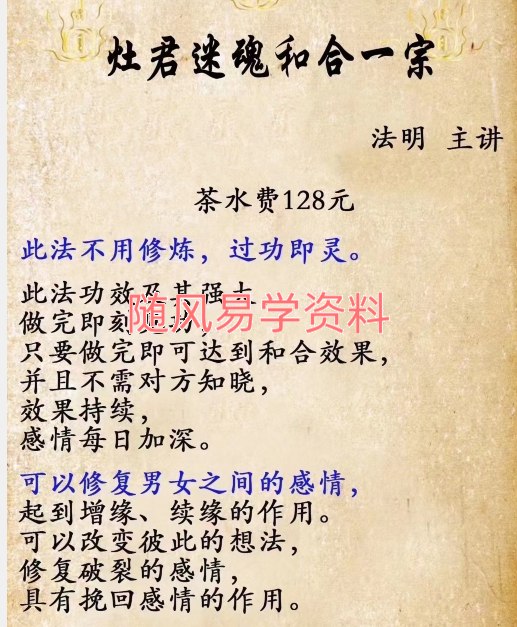 灶君迷魂和合一宗
法明 主讲
茶水费128元
此法不用修炼，过功即灵。
此法功效及其强大
随风易学资料
做完即刻
只要做完即可达到和合效果，
并且不需对方知晓，
效果持续，
感情每日加深。
可以修复男女之间的感情，
起到增缘、续缘的作用。
可以改变彼此的想法，
修复破裂的感情，
具有挽回感情的作用。